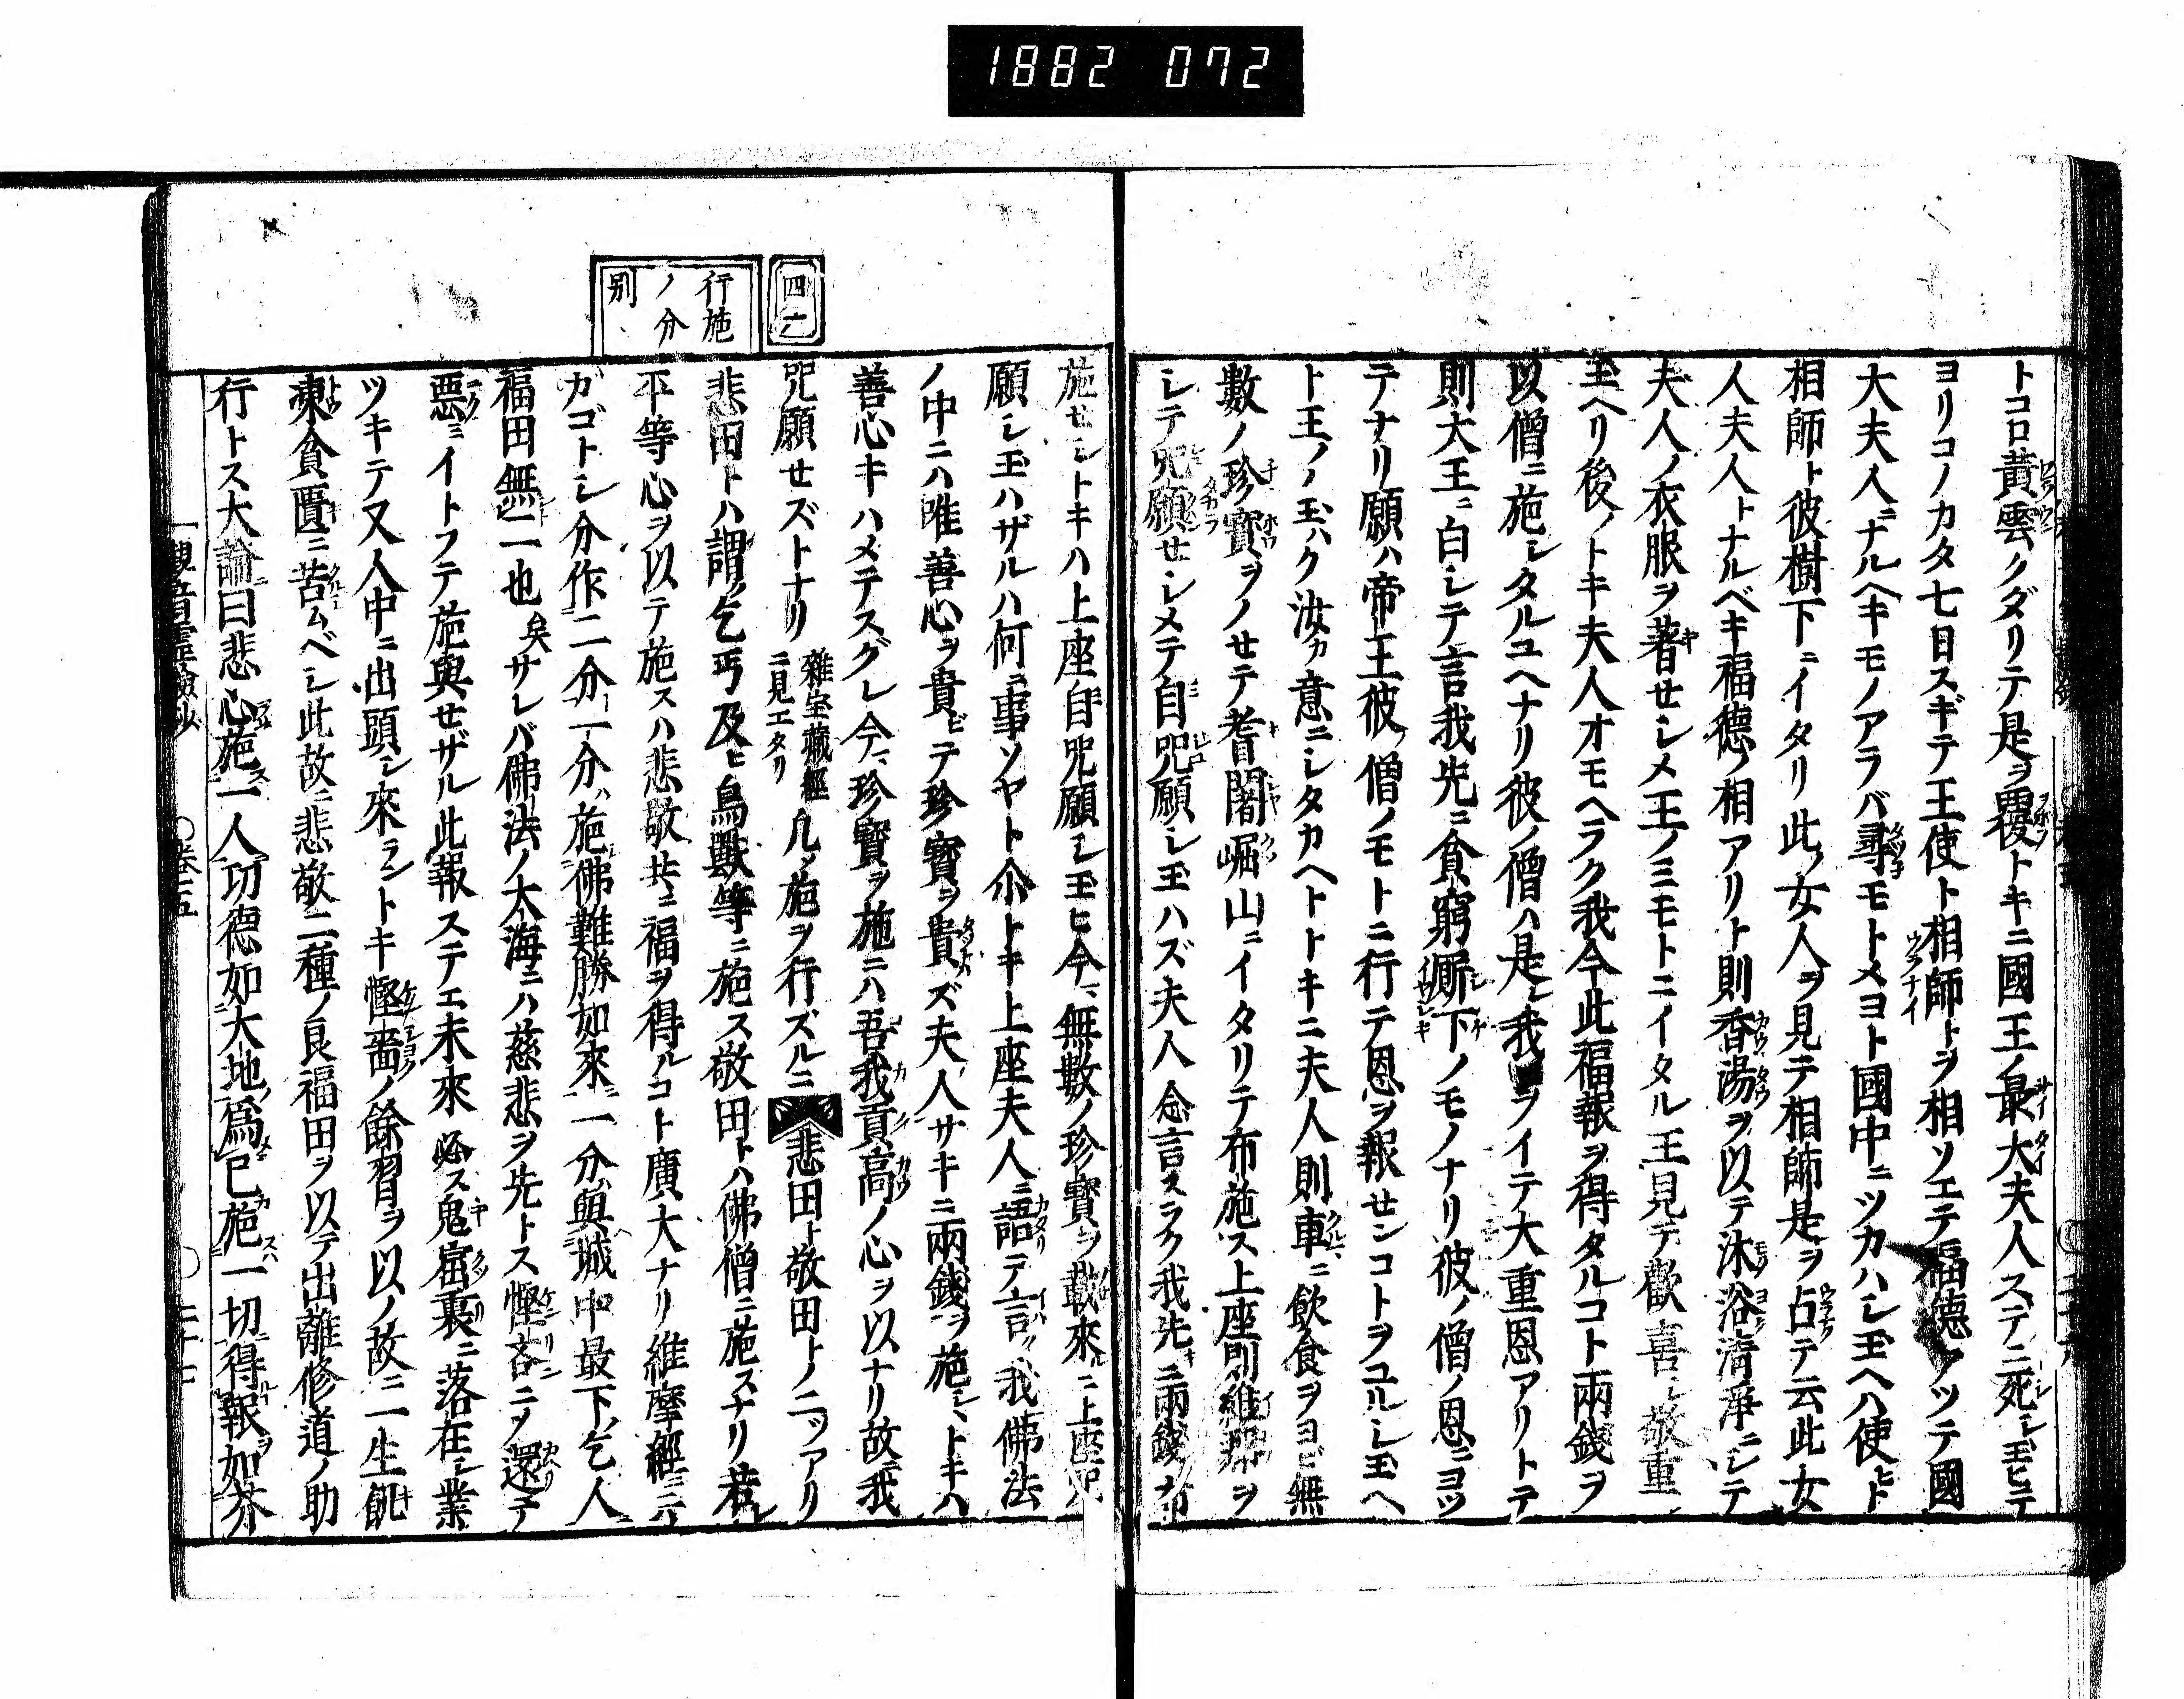 1882 072
トコロ黄雲クダリテ是ヲ覆トキニ國王ノ最大夫人ステニ死シ玉ヒテ
ヨリコノカタ七日スギテ王使ト相師トヲ相ソエテ福徳ノツテ國
大夫人ニナルヘキモノアラバ尋モトメヨト國中ニツカハシ玉ヘハ使ヒト
相師ト彼樹下ニイタリ此ノ女人ヲ見テ相師是ヲ占テ云此女
人夫人トナルベキ福德ノ相アリト則香湯ヲ以テ沐浴清淨ニシテ
夫人ノ衣服ヲ著セシメ王ノミモトニイタル王見テ歡喜シ敬重シ
玉ヘリ後ノトキ夫人オモヘラク我今此福報ヲ得タルコト兩錢ヲ
以僧ニ施シタルユヘナリ彼ノ僧ハ是レ我ヲイテ大重恩アリトテ
則大王ニ白シテ言我先ニ貧窮厮下ノモノナリ彼ノ僧ノ恩ニヨツ
テナリ願ハ帝王彼僧ノモトニ行テ恩ヲ報センコトヲユルシ玉ヘ
ト王ノ玉ハク汝カ意ニシタカヘトトキニ夫人則車ニ飲食ヲヨビ無
數ノ珍寳ヲノセテ耆闍崛山ニイタリテ布施ス上座則維那ヲ
シテ呪願セシメテ自呪願シ玉ハズ夫人念言スラク我先ニ兩錢ヲ布
施セシトキハ上座自呪願シ玉ヒ今ハ無數ノ珍寳ヲ載來ルニ上座呪
願シ玉ハザルハ何ニ事ソヤト尒トキ上座夫人ニ語テ言ハク我佛法
ノ中ニハ唯善心ヲ貴ビテ珍寳ヲ貴ズ夫人サキニ兩錢ヲ施シトキハ
善心キハメテスグレ今ハ珍寳ヲ施ニハ吾我貢高ノ心ヲ以ナリ故ニ我
呪願セズトナリ雜宝藏經ニ見エタリ凡ソ施ヲ行ズルニ悲田ト敬田トノ二ツアリ
四六
行施ノ分別
悲田トハ謂ク乞丐及ヒ鳥獸等ニ施ス敬田トハ佛僧ニ施スナリ若シ
平等心ヲ以テ施スハ悲敬共ニ福ヲ得ルコト廣大ナリ維摩經ニ云
カゴトシ分作二分一分ハ施佛難勝如來一分與城中最下乞人
福田無二也矣サレバ佛法ノ大海ニハ慈悲ヲ先トス慳吝ニノ還テ
惡ミイトフテ施與セザル此報ステエ未來必ス鬼窟裏ニ落在シ業
ツキテ又人中ニ出頭シ來ラントキ慳嗇ノ餘習ヲ以ノ故ニ一生飢
凍貧匱ニ苦ムベシ此故ニ悲敬二種ノ良福田ヲ以テ出離修道ノ助
行トス大論曰悲心施一人功德如大地爲己施一切得報如芥
觀音靈驗抄 〇卷五 〇 二十七